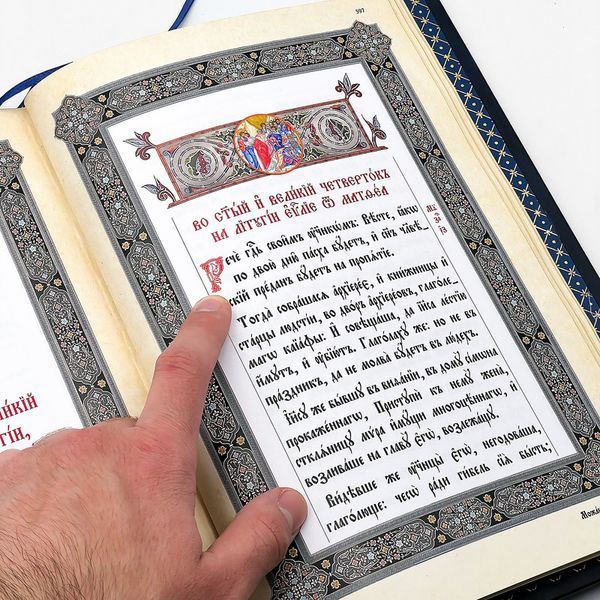 597
во ст҃ы́й и҆ вели́кїй четверто́къ
на лїтꙋргі́и є҆ѵⷢ҇лїе ѿ матѳе́а
Речѐ гдⷭ҇ь свои̑мъ ᲂу҆чн҃кѡ́мъ: Вѣ́сте, ꙗ҆́кѡ
по двою̀ дні́й па́сха бꙋ́детъ, и҆ сн҃ъ чл҃вѣ́-
скїй пре́данъ бꙋ́детъ на пропѧ́тїе.
Тогда̀ собра́шасѧ а҆рхїере́є, и҆ кни́жницы и҆
ста́рцы людсті́и, во дво́ръ а҆рхїере́овъ, глаго́ле-
магѡ каїа́фы: И҆ совѣща́ша, да і҆и҃са ле́стїю
и҆́мꙋтъ, и҆ ᲂу҆бїю́тъ. Глаго́лахꙋ же: но не въ
пра́здникъ, да не молва̀ бꙋ́детъ въ лю́дехъ.
І҆и҃сꙋ же бы́вшꙋ въ виѳа́нїи, въ домꙋ̀ сі́мѡна
прокаже́ннагѡ, Пристꙋпѝ къ немꙋ̀ жена̀,
сткля́ницꙋ мѵ́ра и҆мꙋ́щи многоцѣ́ннагѡ, и҆
возлива́ше на главꙋ̀ є҆гѡ̀, возлежа́ща.
Ви́дѣвше же ᲂу҆чн҃цы̀ є҆гѡ̀, негодова́ша,
глаго́люще: чесѡ̀ ра́ди ги́бель сїѧ̀ бы́сть;